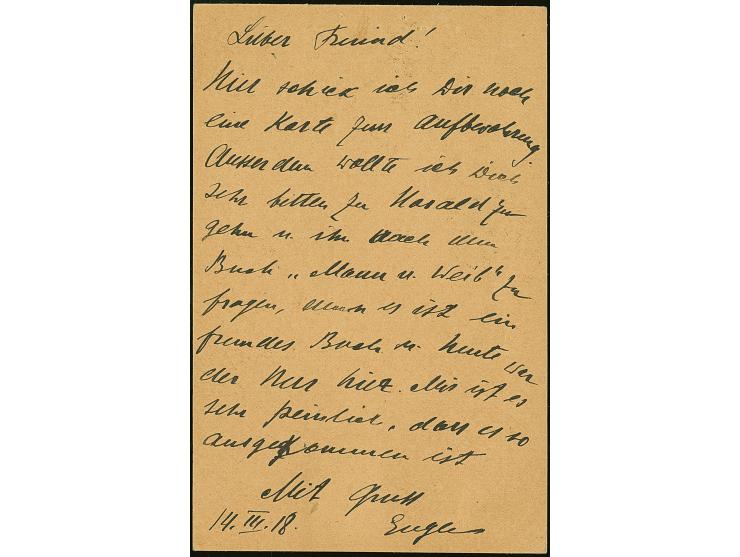 Lieber Freund!
Hier schick ich Dir noch
eine Karte zur Aufbewahrung.
Ausserdem wollte ich Dich
sehr bitten zu Harald zu
gehn u. ihn nach dem
Buch „Mann u. Weib" zu
fragen, denn es ist ein
fremdes Buch u. heute war
der Herr hier. Mir ist es
sehr peinlich, dass es so
ausgekommen ist
Mit Gruss
14. III. 18.